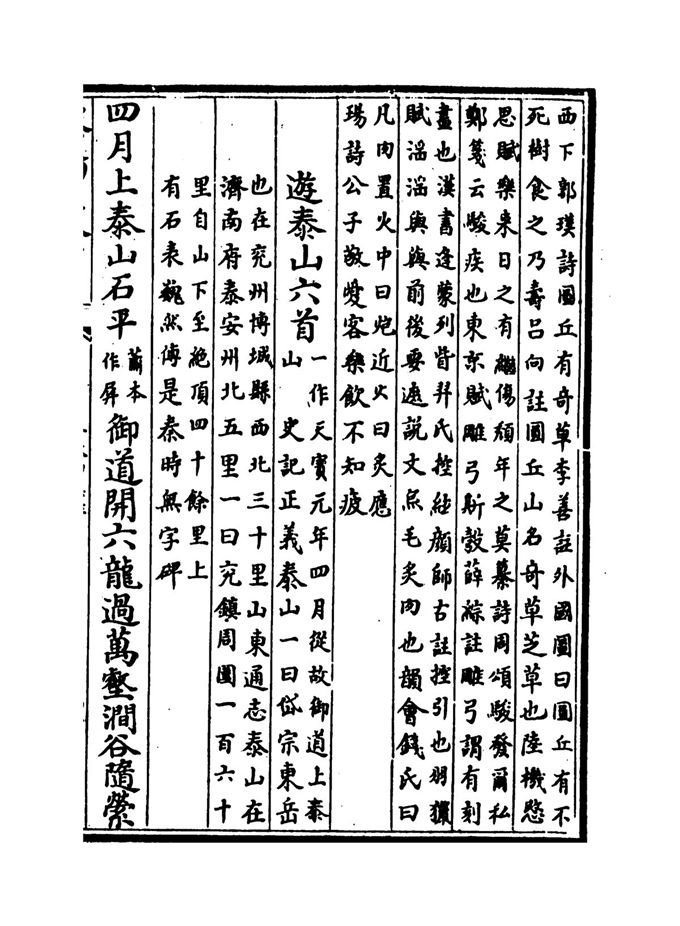 西下郭璞詩圜丘有奇草李善註外國圖曰圜丘有不
死樹食之乃壽呂向註圜丘山名奇草芝草也陸機愍
思賦樂來日之有繼傷頽年之莫纂詩周頌駿發爾私
鄭箋云駿疾也東京賦雕弓斯彀薛綜註雕弓謂有刻
畫也漢書逢蒙列眥羿氏控弦顔師古註控引也羽獵
賦滛滛與與前後要遮說文炰毛炙肉也韻會錢氏曰
凡肉置火中曰炮近火曰炙應
瑒詩公子敬愛客樂飲不知疲
遊泰山六首一作天寶元年四月從故御道上泰
山　史記正義泰山一曰岱宗東岳
也在兖州博城縣西北三十里山東通志泰山在
濟南府泰安州北五里一曰兖鎮周圍一百六十
里自山下至絶頂四十餘里上
有石表巍然傳是秦時無字碑
四月上泰山石平蕭本作屏御道開六龍過萬壑澗谷隨縈